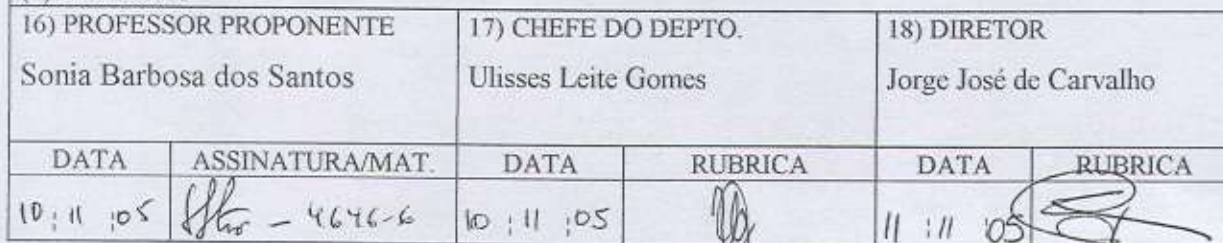 16) PROFESSOR PROPONENTE
Sonia Barbosa dos Santos
17) CHEFE DO DEPTO.
Ulisses Leite Gomes
18) DIRETOR
Jorge José de Carvalho
DATA ASSINATURA/MAT. DATA RUBRICA DATA RUBRICA
10 : 11 : 05 - 4646-6 10 : 11 : 05 11 : 11 : 05